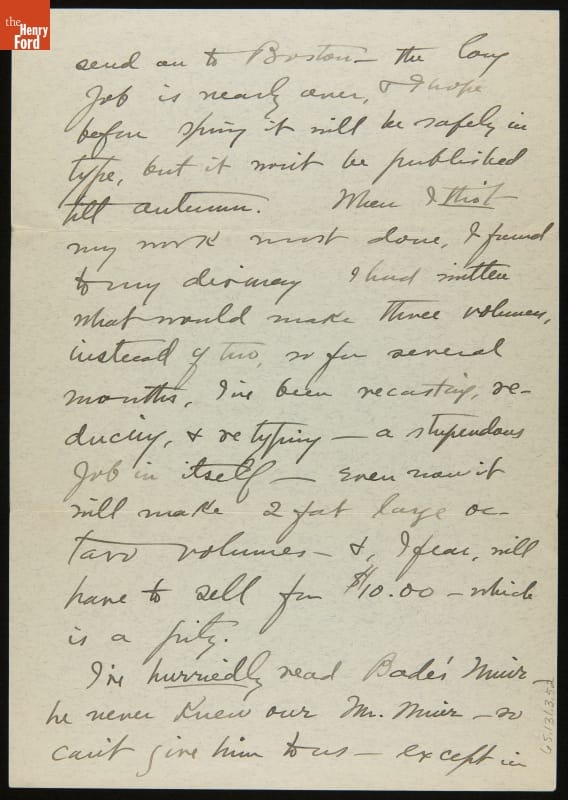 the
Henry
Ford
send on to Boston — the long
job is nearly over, & I hope
before spring it will be safely in
type, but it won't be published
till autumn. When I thot
my work most done, I found
to my dismay I had written
what would make three volumes,
instead of two, so for several
months, I've been recasting, re-
ducing, & retyping — a stupendous
job in itself — even now it
will make 2 fat large oc-
tavo volumes — &, I fear, will
have to sell for $10.00 — which
is a pity.
I've hurriedly read Badè's Muir —
he never knew our Mr. Muir — so
can't give him to us — except in
65.131.3.52